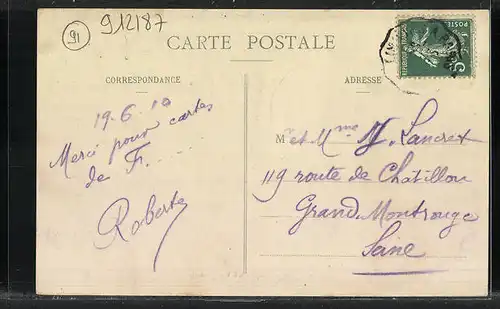 91
912187
CARTE POSTALE
CORRESPONDANCE
ADRESSE
19-6-10
Merci pour cartes
de F.....
Roberte
Mr et Mme M. Lancret
119 route de Châtillon
Grand Montrouge
Seine